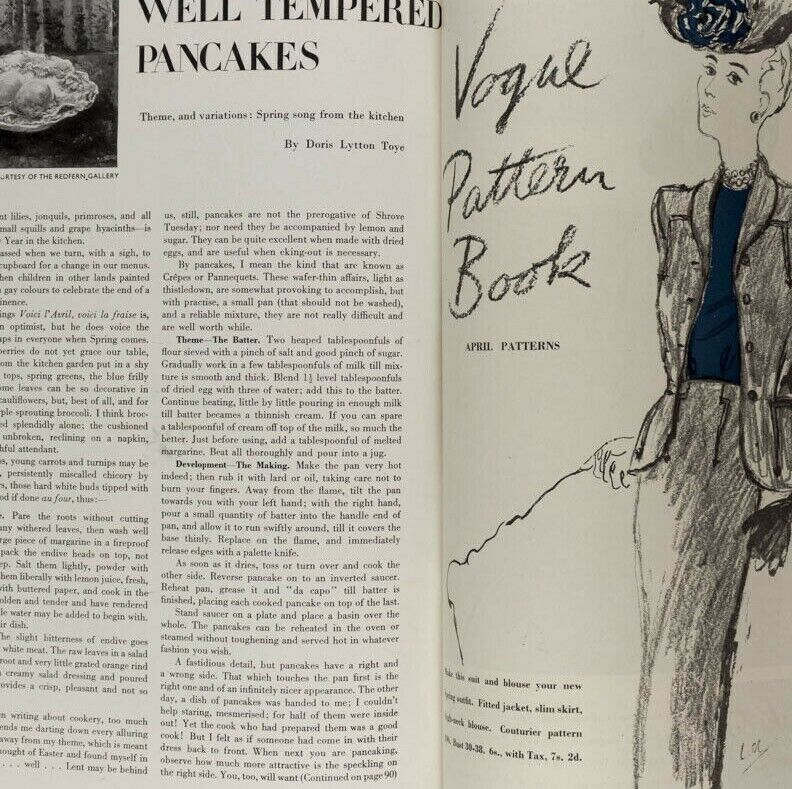 WELL TEMPERED
PANCAKES
Theme, and variations: Spring song from the kitchen
By Doris Lytton Toye
OF THE REDFERN GALLERY
lilies, jonquils, primroses, and all
mall squills and grape hyacinths—is
Year in the kitchen.
when we turn, with a sigh, to
cupboard for a change in our menus.
children in other lands painted
gay colours to celebrate the end of a
ings Voici l'Avril, voici la fraise is,
optimist, but he does voice the
in everyone when Spring comes.
berries do not yet grace our table,
from the kitchen garden put in a shy
tops, spring greens, the blue frilly
leaves can be so decorative in
cauliflowers, but, best of all, and for
sprouting broccoli. I think broc-
splendidly alone; the cushioned
unbroken, reclining on a napkin,
attendant.
young carrots and turnips may be
persistently miscalled chicory by
those hard white buds tipped with
if done au four, thus:—
Pare the roots without cutting
any withered leaves, then wash well
piece of margarine in a fireproof
pack the endive heads on top, not
Salt them lightly, powder with
them liberally with lemon juice, fresh,
with buttered paper, and cook in the
golden and tender and have rendered
water may be added to begin with.
dish.
The slight bitterness of endive goes
white meat. The raw leaves in a salad
root and very little grated orange rind
creamy salad dressing and poured
provides a crisp, pleasant and not so
writing about cookery, too much
sends me darting down every alluring
away from my theme, which is meant
thought of Easter and found myself in
. . . . well . . . Lent may be behind
us, still, pancakes are not the prerogative of Shrove
Tuesday; nor need they be accompanied by lemon and
sugar. They can be quite excellent when made with dried
eggs, and are useful when eking-out is necessary.
By pancakes, I mean the kind that are known as
Crêpes or Pannequets. These wafer-thin affairs, light as
thistledown, are somewhat provoking to accomplish, but
with practise, a small pan (that should not be washed),
and a reliable mixture, they are not really difficult and
are well worth while.
Theme—The Batter. Two heaped tablespoonfuls of
flour sieved with a pinch of salt and good pinch of sugar.
Gradually work in a few tablespoonfuls of milk till mix-
ture is smooth and thick. Blend 1½ level tablespoonfuls
of dried egg with three of water; add this to the batter.
Continue beating, little by little pouring in enough milk
till batter becomes a thinnish cream. If you can spare
a tablespoonful of cream off top of the milk, so much the
better. Just before using, add a tablespoonful of melted
margarine. Beat all thoroughly and pour into a jug.
Development—The Making. Make the pan very hot
indeed; then rub it with lard or oil, taking care not to
burn your fingers. Away from the flame, tilt the pan
towards you with your left hand; with the right hand,
pour a small quantity of batter into the handle end of
pan, and allow it to run swiftly around, till it covers the
base thinly. Replace on the flame, and immediately
release edges with a palette knife.
As soon as it dries, toss or turn over and cook the
other side. Reverse pancake on to an inverted saucer.
Reheat pan, grease it and "da capo" till batter is
finished, placing each cooked pancake on top of the last.
Stand saucer on a plate and place a basin over the
whole. The pancakes can be reheated in the oven or
steamed without toughening and served hot in whatever
fashion you wish.
A fastidious detail, but pancakes have a right and
a wrong side. That which touches the pan first is the
right one and of an infinitely nicer appearance. The other
day, a dish of pancakes was handed to me; I couldn't
help staring, mesmerised; for half of them were inside
out! Yet the cook who had prepared them was a good
cook! But I felt as if someone had come in with their
dress back to front. When next you are pancaking,
observe how much more attractive is the speckling on
the right side. You, too, will want (Continued on page 90)
Vogue
Pattern
Book
APRIL PATTERNS
this suit and blouse your new
outfit. Fitted jacket, slim skirt,
blouse. Couturier pattern
Bust 30-38. 6s., with Tax, 7s. 2d.